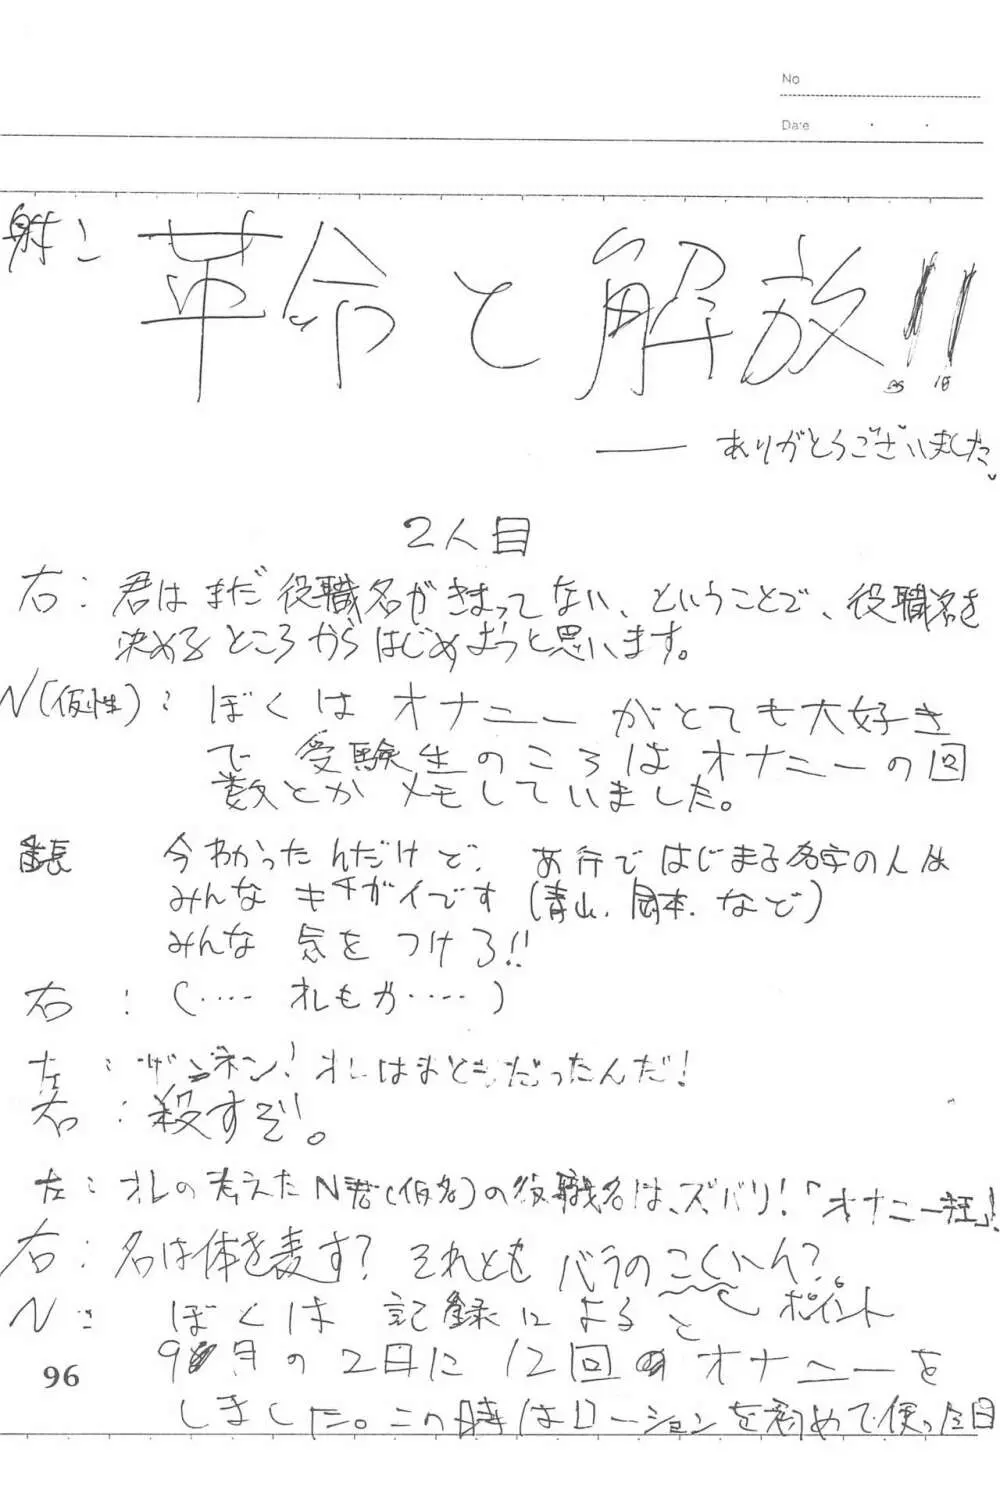 No
Date
射:
革命と解放!!
—— ありがとうございました。
2人目
右: 君はまだ役職名がきまってない、ということで、役職名を
決めるところからはじめようと思います。
N(仮性): ぼくはオナニーがとても大好き
で受験生のころはオナニーの回
数とかメモしていました。
番長 今わかったんだけど、あ行ではじまる名字の人は
みんなキチガイです(青山、岡本、など)
みんな気をつけろ!!
右: (‥‥オレもか‥‥)
左: ザンネン!オレはまともだったんだ!
右: 殺すぞ!。
左: オレの考えたN君(仮名)の役職名は、ズバリ!「オナニー狂」!
右: 名は体を表す?それともバラのこくいん?
ポイント
N: ぼくは記録によると
9月の2日に12回オナニーを
しました。この時はローションを初めて使った日
96